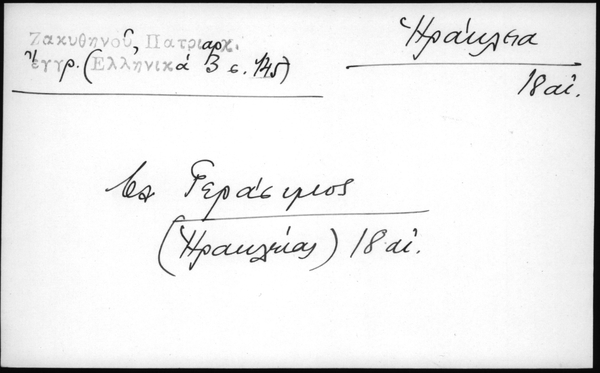 Ζακυθηνοῦ, Πατριαρχ.
ἔγγρ. (Ἑλληνικά 3 σ. 145)
Ἡράκλεια
18 αἰ.
Γεράσιμος
(Ἡρακλείας) 18 αἰ.